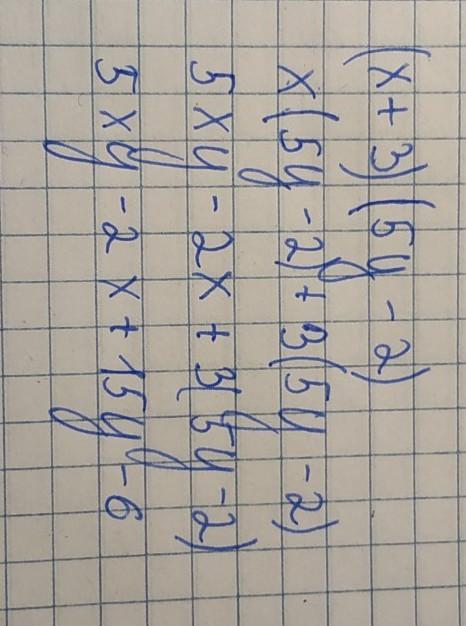 (x+3)(5y-2)
x(5y-2)+3(5y-2)
5xy-2x+3(5y-2)
5xy-2x+15y-6